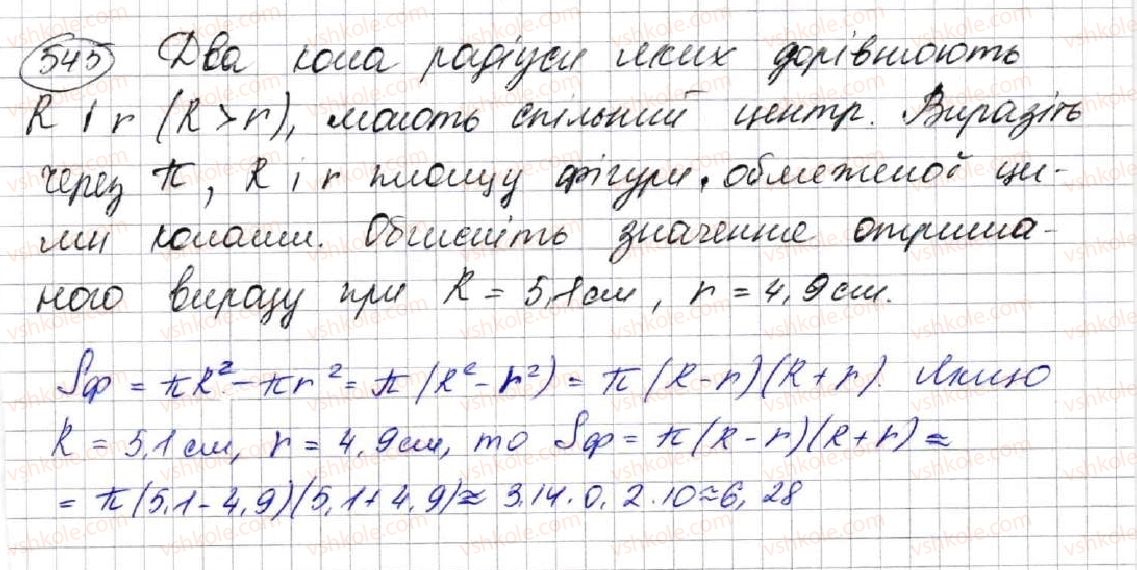 545 Два кола радіуси яких дорівнюють
R і r (R > r), мають спільний центр. Виразіть
через π, R і r площу фігури, обмеженої ци-
ми колами. Обчисліть значення отрима-
ного виразу при R = 5,1 см, r = 4,9 см.
Sф = πR² - πr² = π (R² - r²) = π (R - r)(R + r). Якщо
R = 5,1 см, r = 4,9 см, то Sф = π (R - r)(R + r) =
= π (5,1 - 4,9)(5,1 + 4,9) ≈ 3,14 · 0,2 · 10 ≈ 6,28